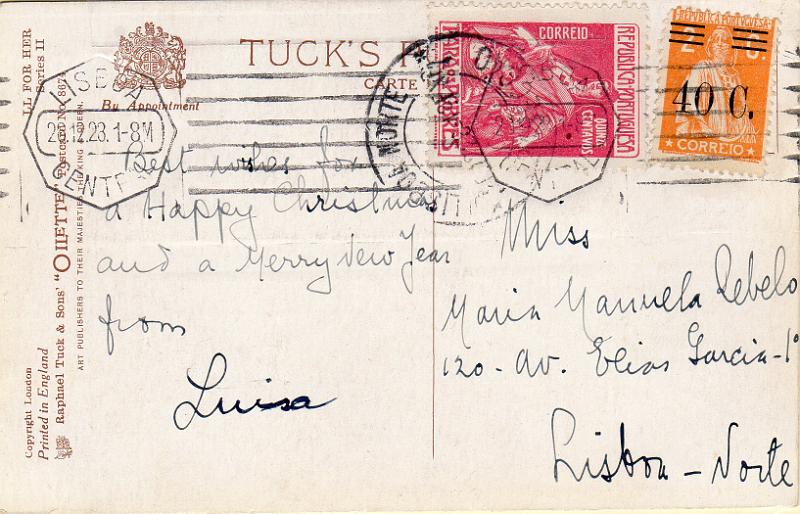 TUCK'S
CARTE
By Appointment
LL FOR HER
Series II
"OILETTE" Postcard No. 867
Raphael Tuck & Sons'
ART PUBLISHERS TO THEIR MAJESTIES THE KING & QUEEN.
Copyright London
Printed in England
LISBOA
12.23.1-8M
CENTRAL
NORTE
CORREIO
REPUBLICA PORTUGUESA
QUINZE
CENTAVOS
REPUBLICA PORTUGUESA
2 C.
40 C.
CORREIO
Best wishes for
a Happy Christmas
and a Merry New Year
from
Luisa
Miss
Maria Manuela Rebelo
120-Av. Elias Garcia-1º
Lisboa-Norte